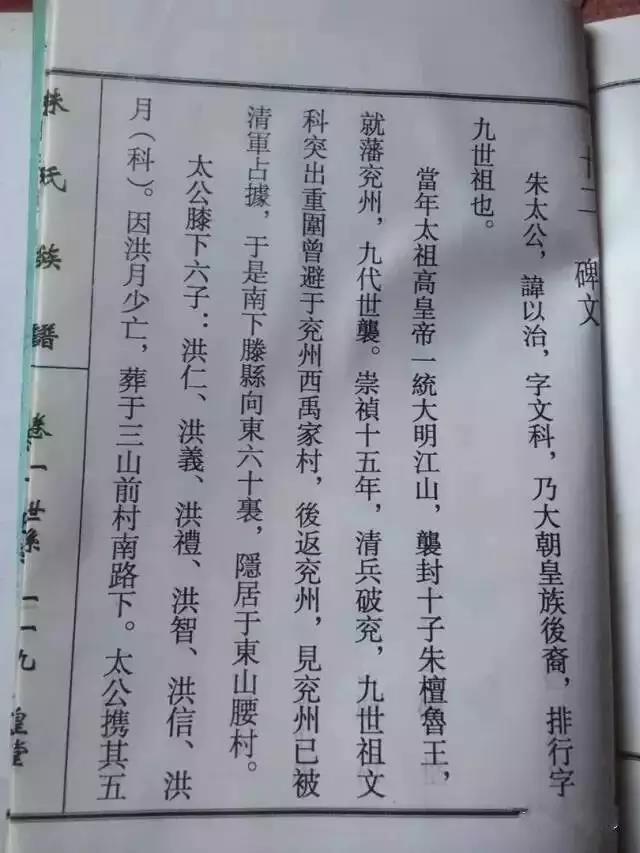 十二 碑文
朱太公，諱以治，字文科，乃大朝皇族後裔，排行字
九世祖也。
當年太祖高皇帝一統大明江山，襲封十子朱檀魯王，
就藩兖州，九代世襲。崇禎十五年，清兵破兖，九世祖文
科突出重圍曾避于兖州西禹家村，後返兖州，見兖州已被
清軍占據，于是南下滕縣向東六十裏，隱居于東山腰村。
太公膝下六子：洪仁、洪義、洪禮、洪智、洪信、洪
月（科）。因洪月少亡，葬于三山前村南路下。太公携其五
氏族譜 卷一 世系 一一九